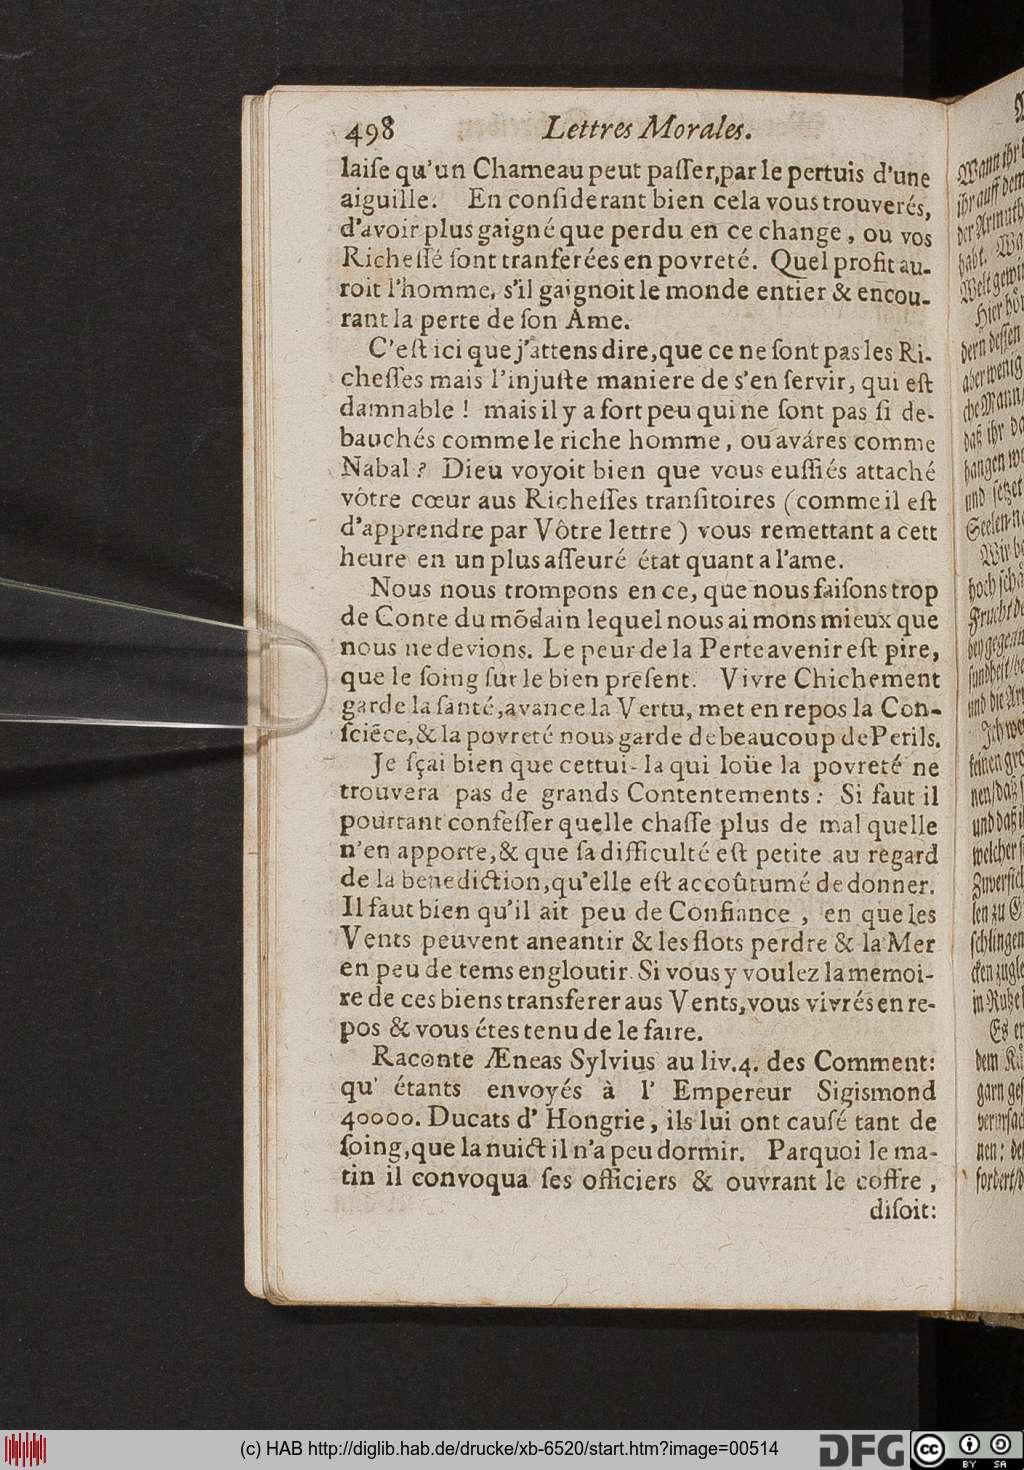 498 Lettres Morales.
laiſe qu'un Chameau peut paſſer,par le pertuis d'une
aiguille. En conſiderant bien cela vous trouverés,
d'avoir plus gaigné que perdu en ce change, ou vos
Richeſſé ſont tranferées en povreté. Quel profit au-
roit l'homme, s'il gaignoit le monde entier & encou-
rant la perte de ſon Ame.
C'eſt ici que j'attens dire,que ce ne ſont pas les Ri-
cheſſes mais l'injuſte maniere de s'en ſervir, qui eſt
damnable ! mais il y a fort peu qui ne ſont pas ſi de-
bauchés comme le riche homme, ou aváres comme
Nabal ? Dieu voyoit bien que vous euſſiés attaché
vôtre cœur aus Richeſſes tranſitoires (comme il eſt
d'apprendre par Vôtre lettre ) vous remettant a cett
heure en un plus aſſeuré état quant a l'ame.
Nous nous trompons en ce, que nous faiſons trop
de Conte du mõdain lequel nous aimons mieux que
nous ne devions. Le peur de la Perte avenir eſt pire,
que le ſoing ſur le bien preſent. Vivre Chichement
garde la ſanté,avance la Vertu, met en repos la Con-
ſciẽce,& la povreté nous garde de beaucoup de Perils.
Je ſçai bien que cettui-la qui loüe la povreté ne
trouvera pas de grands Contentements: Si faut il
pourtant confeſſer quelle chaſſe plus de mal quelle
n'en apporte,& que ſa difficulté eſt petite au regard
de la benediction,qu'elle eſt accoûtumé de donner.
Il faut bien qu'il ait peu de Confiance , en que les
Vents peuvent aneantir & les flots perdre & la Mer
en peu de tems engloutir. Si vous y voulez la memoi-
re de ces biens transferer aus Vents,vous vivrés en re-
pos & vous étes tenu de le faire.
Raconte Æneas Sylvius au liv.4. des Comment:
qu' étants envoyés à l' Empereur Sigismond
40000. Ducats d' Hongrie, ils lui ont cauſé tant de
ſoing,que la nuict il n'a peu dormir. Parquoi le ma-
tin il convoqua ſes officiers & ouvrant le coffre ,
diſoit:
Wann ihr
ihr auff dem
der Armuth
habt. Wa
Welt gewi
Hier hör
dern deſſen
aber wenig
che Mann/
daß ihr da
hangen wo
und ſetzet
Seelen-n
Wir be
hoch ſchä
Frucht de
und die Ar
Ich we
keinen gro
nen/daß
und daß i
welcher ſ
Zuverſich
len zu G
ſchlingen
cken zugle
in Ruhe
Es er
dem Kä
garn geſ
verurſac
nen: de
fordert/d
(c) HAB http://diglib.hab.de/drucke/xb-6520/start.htm?image=00514
DFG
cc BY SA